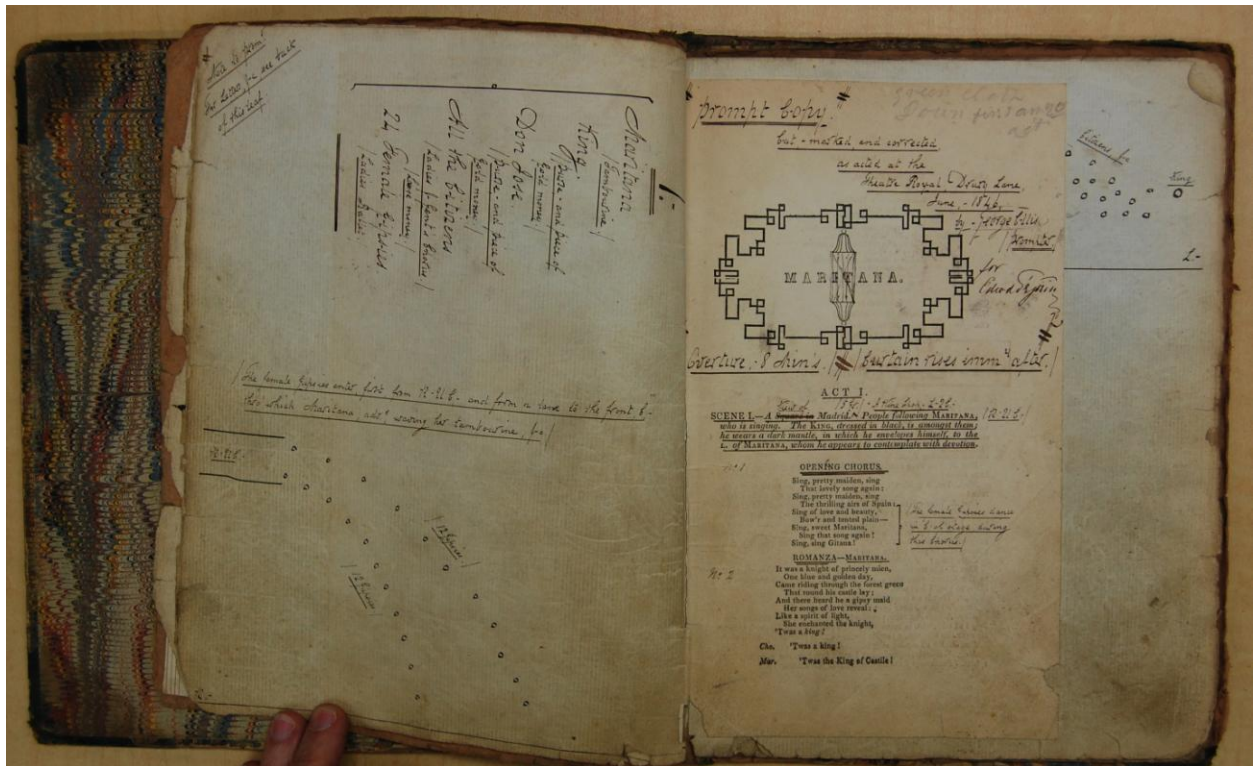 Maritana
/Tambourine/
King
/purse - and piece of
gold money/
Don José
/purse - and piece of
gold money/
All the Citizens
/Ladies & Gent's Chorus/
/Loose money/
24 Female Gipsies
/Ladies Ballet/
1.-
/The female Gipsies enter first from R-U.E.- and form a lane to the front
which Maritana advs waving her tambourine, &c/
R-U.E.
/12 Gipsies/
/12 Gipsies/
"Prompt Copy"
Green Cloth
Down
cut - marked and corrected
as acted at the
Theatre Royal - Drury Lane,
June, - 1846,
by - George Ellis
/Prompter,
for
MARITANA.
Overture - 8 Min's. / /Curtain rises immy after./
ACT I.
SCENE I.—A Square in Madrid. People following MARITANA, /R-U.E-/
who is singing. The KING, dressed in black, is amongst them;
he wears a dark mantle, in which he envelopes himself, to the
L. of MARITANA, whom he appears to contemplate with devotion.
No 1
OPENING CHORUS.
Sing, pretty maiden, sing
That lovely song again:
Sing, pretty maiden, sing
The thrilling airs of Spain:
Sing of love and beauty,
Bow'r and tented plain—
Sing, sweet Maritana,
Sing that song again!
Sing, sing Gitana!
/The female Gipsies dance
in C. of stage, during
this Chorus./
ROMANZA—MARITANA.
No 2
It was a knight of princely mien,
One blue and golden day,
Came riding through the forest green
That round his castle lay;
And there heard he a gipsy maid
Her songs of love reveal:
Like a spirit of light,
She enchanted the knight,
'Twas a king?
Cho. 'Twas a king!
Mar. 'Twas the King of Castile!
Citizens &c
King
L-